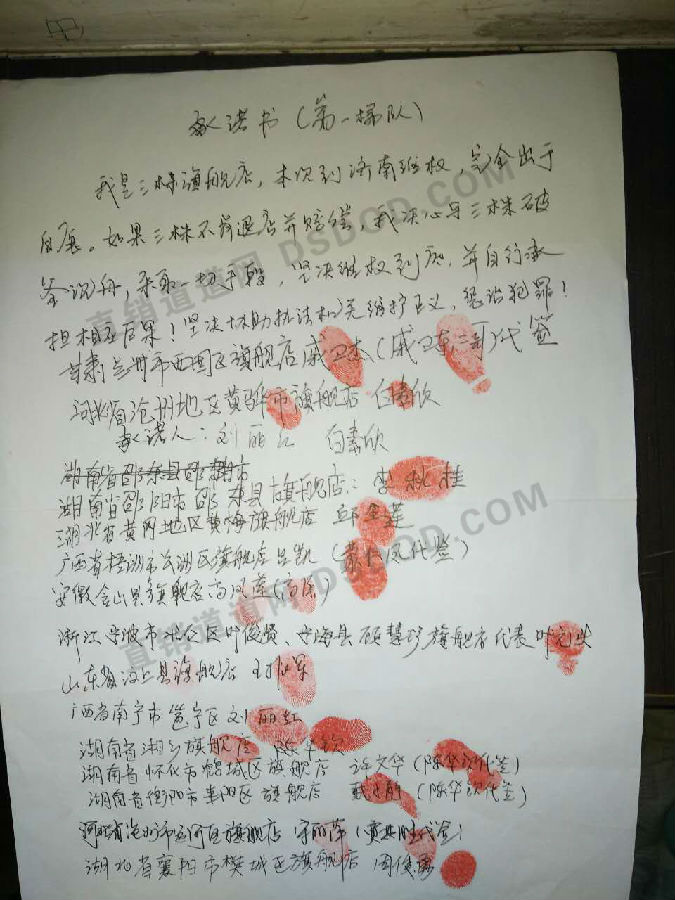 承诺书(第一梯队)
我是三株旗舰店，本次到济南维权，完全出于
自愿。如果三株不给退店并赔偿，我决心与三株破
釜沉舟，采取一切手段，坚决维权到底，并自行承
担相应后果！坚决协助执法机关维护正义，惩治犯罪！
甘肃兰州市西固区旗舰店戚卫杰(戚卫 代签
河北省沧州地区黄骅市旗舰店 白素欣
承诺人：刘丽红 白素欣
湖南省邵东县邵 市
湖南省邵阳市邵东县旗舰店：李秋桂
湖北省黄冈地区黄梅旗舰店 邱金莲
广西省梧州市长洲区旗舰店吕凯( 凤代签)
安徽含山县旗舰店高凤莲
浙江宁波市北仑区叶俊贤、宁海县顾慧 旗舰店代表叶
山东省汶上县旗舰店
广西省南宁市邕宁区刘丽红
湖南省湘乡旗舰店 陈华钦
湖南省怀化市鹤城区旗舰店 许文华(陈华钦代签)
湖南省衡阳市耒阳区旗舰店 (陈华钦代签)
河北省沧州市运河区旗舰店 宋丽萍( 代签)
湖北省襄阳市樊城区旗舰店 周俊
直销道道网 DSDOD.COM
直销道道网 DSDOD.COM